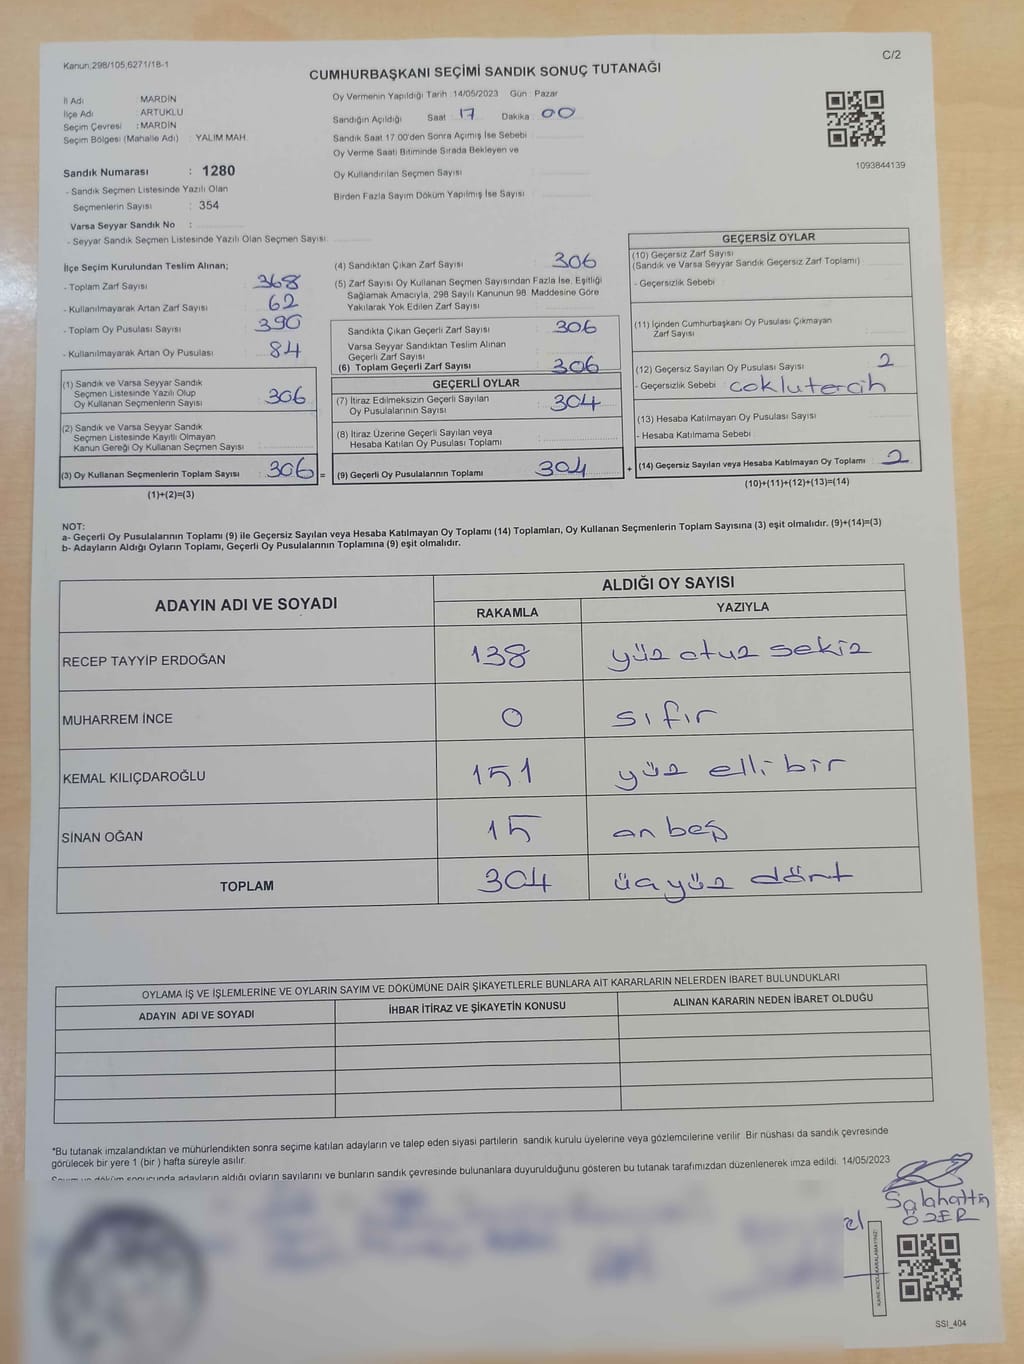 Kanun,298/105,6271/18-1
C/2
CUMHURBAŞKANI SEÇİMİ SANDIK SONUÇ TUTANAĞI
İl Adı MARDİN
İlçe Adı ARTUKLU
Seçim Çevresi : MARDİN
Seçim Bölgesi (Mahalle Adı) : YALIM MAH.
Sandık Numarası : 1280
- Sandık Seçmen Listesinde Yazılı Olan
Seçmenlerin Sayısı : 354
Varsa Seyyar Sandık No :
- Seyyar Sandık Seçmen Listesinde Yazılı Olan Seçmen Sayısı:
Oy Vermenin Yapıldığı Tarih : 14/05/2023 Gün : Pazar
Sandığın Açıldığı Saat 17 Dakika 00
Sandık Saat 17.00'den Sonra Açımış İse Sebebi
Oy Verme Saati Bitiminde Sırada Bekleyen ve
Oy Kullandırılan Seçmen Sayısı
Birden Fazla Sayım Döküm Yapılmış İse Sayısı
1093844139
İlçe Seçim Kurulundan Teslim Alınan;
- Toplam Zarf Sayısı : 368
- Kullanılmayarak Artan Zarf Sayısı : 62
- Toplam Oy Pusulası Sayısı : 390
- Kullanılmayarak Artan Oy Pusulası : 84
(1) Sandık ve Varsa Seyyar Sandık
Seçmen Listesinde Yazılı Olup
Oy Kullanan Seçmenlerin Sayısı : 306
(2) Sandık ve Varsa Seyyar Sandık
Seçmen Listesinde Kayıtlı Olmayan
Kanun Gereği Oy Kullanan Seçmen Sayısı
(3) Oy Kullanan Seçmenlerin Toplam Sayısı : 306 =
(1)+(2)=(3)
(4) Sandıktan Çıkan Zarf Sayısı : 306
(5) Zarf Sayısı Oy Kullanan Seçmen Sayısından Fazla İse, Eşitliği
Sağlamak Amacıyla, 298 Sayılı Kanunun 98. Maddesine Göre
Yakılarak Yok Edilen Zarf Sayısı
Sandıkta Çıkan Geçerli Zarf Sayısı : 306
Varsa Seyyar Sandıktan Teslim Alınan
Geçerli Zarf Sayısı
(6) Toplam Geçerli Zarf Sayısı : 306
GEÇERLİ OYLAR
(7) İtiraz Edilmeksizin Geçerli Sayılan
Oy Pusulalarının Sayısı : 304
(8) İtiraz Üzerine Geçerli Sayılan veya
Hesaba Katılan Oy Pusulası Toplamı
(9) Geçerli Oy Pusulalarının Toplamı : 304 +
GEÇERSİZ OYLAR
(10) Geçersiz Zarf Sayısı
(Sandık ve Varsa Seyyar Sandık Geçersiz Zarf Toplamı)
- Geçersizlik Sebebi :
(11) İçinden Cumhurbaşkanı Oy Pusulası Çıkmayan
Zarf Sayısı
(12) Geçersiz Sayılan Oy Pusulası Sayısı : 2
- Geçersizlik Sebebi : coklutercih
(13) Hesaba Katılmayan Oy Pusulası Sayısı
- Hesaba Katılmama Sebebi
(14) Geçersiz Sayılan veya Hesaba Katılmayan Oy Toplamı : 2
(10)+(11)+(12)+(13)=(14)
NOT:
a- Geçerli Oy Pusulalarının Toplamı (9) ile Geçersiz Sayılan veya Hesaba Katılmayan Oy Toplamı (14) Toplamları, Oy Kullanan Seçmenlerin Toplam Sayısına (3) eşit olmalıdır. (9)+(14)=(3)
b- Adayların Aldığı Oyların Toplamı, Geçerli Oy Pusulalarının Toplamına (9) eşit olmalıdır.
ADAYIN ADI VE SOYADI
ALDIĞI OY SAYISI
RAKAMLA YAZIYLA
RECEP TAYYİP ERDOĞAN 138 yüz otuz sekiz
MUHARREM İNCE 0 sıfır
KEMAL KILIÇDAROĞLU 151 yüz elli bir
SİNAN OĞAN 15 on beş
TOPLAM 304 üçyüz dört
OYLAMA İŞ VE İŞLEMLERİNE VE OYLARIN SAYIM VE DÖKÜMÜNE DAİR ŞİKAYETLERLE BUNLARA AİT KARARLARIN NELERDEN İBARET BULUNDUKLARI
ADAYIN ADI VE SOYADI İHBAR İTİRAZ VE ŞİKAYETİN KONUSU ALINAN KARARIN NEDEN İBARET OLDUĞU
*Bu tutanak imzalandıktan ve mühürlendikten sonra seçime katılan adayların ve talep eden siyasi partilerin sandık kurulu üyelerine veya gözlemcilerine verilir. Bir nüshası da sandık çevresinde
görülecek bir yere 1 (bir ) hafta süreyle asılır.
Sayım ve döküm sonucunda adayların aldığı oyların sayılarını ve bunların sandık çevresinde bulunanlara duyurulduğunu gösteren bu tutanak tarafımızdan düzenlenerek imza edildi. 14/05/2023
Salahattin
ÖZER
SSI_404